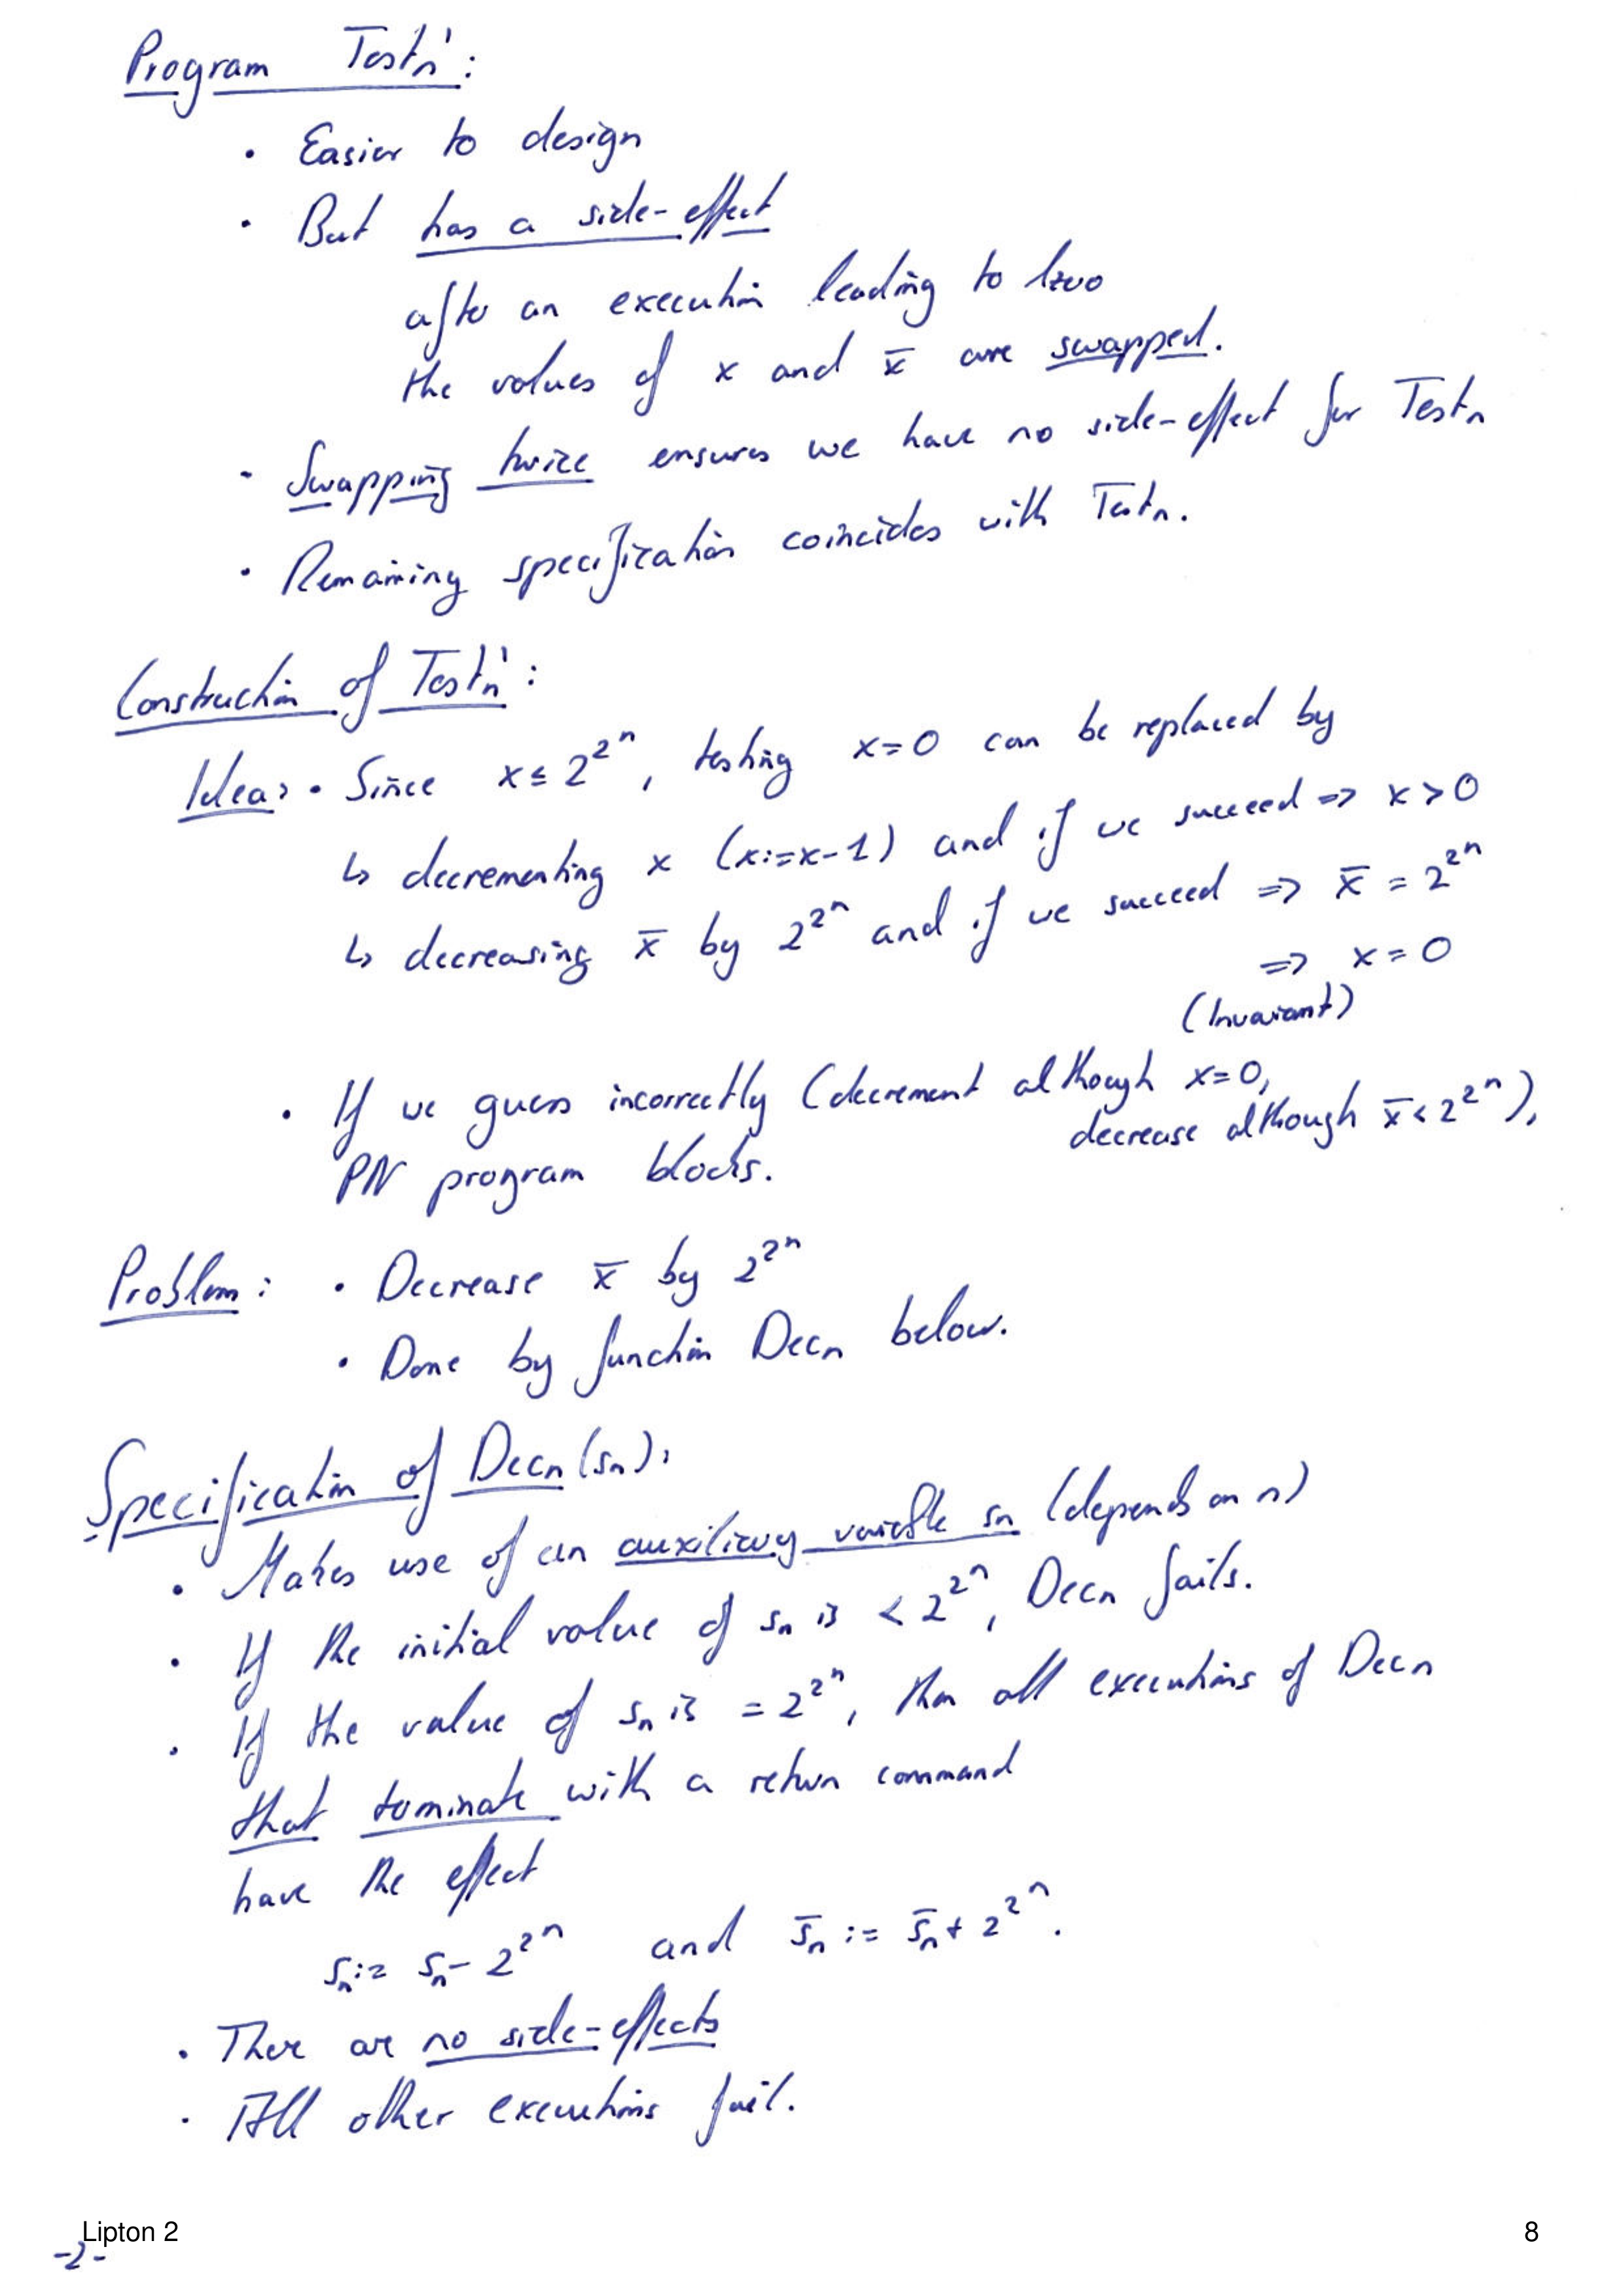 Program Testn':
• Easier to design
• But has a side-effect
after an execution leading to lzero
the values of x and x̄ are swapped.
• Swapping twice ensures we have no side-effect for Testn
• Remaining specification coincides with Testn.
Construction of Testn':
Idea: • Since x ≤ 2^2^n, testing x=0 can be replaced by
↳ decrementing x (x:=x-1) and if we succeed => x>0
↳ decreasing x̄ by 2^2^n and if we succeed => x̄ = 2^2^n
=> x=0
(Invariant)
• If we guess incorrectly (decrement although x=0,
decrease although x̄ < 2^2^n),
PN program blocks.
Problem: • Decrease x̄ by 2^2^n
• Done by function Decn below.
Specification of Decn(sn):
• Makes use of an auxiliary variable sn (depends on n)
• If the initial value of sn is < 2^2^n, Decn fails.
• If the value of sn is = 2^2^n, then all executions of Decn
that terminate with a return command
have the effect
sn := sn - 2^2^n and s̄n := s̄n + 2^2^n.
• There are no side-effects
• All other executions fail.
Lipton 2
8
-2-